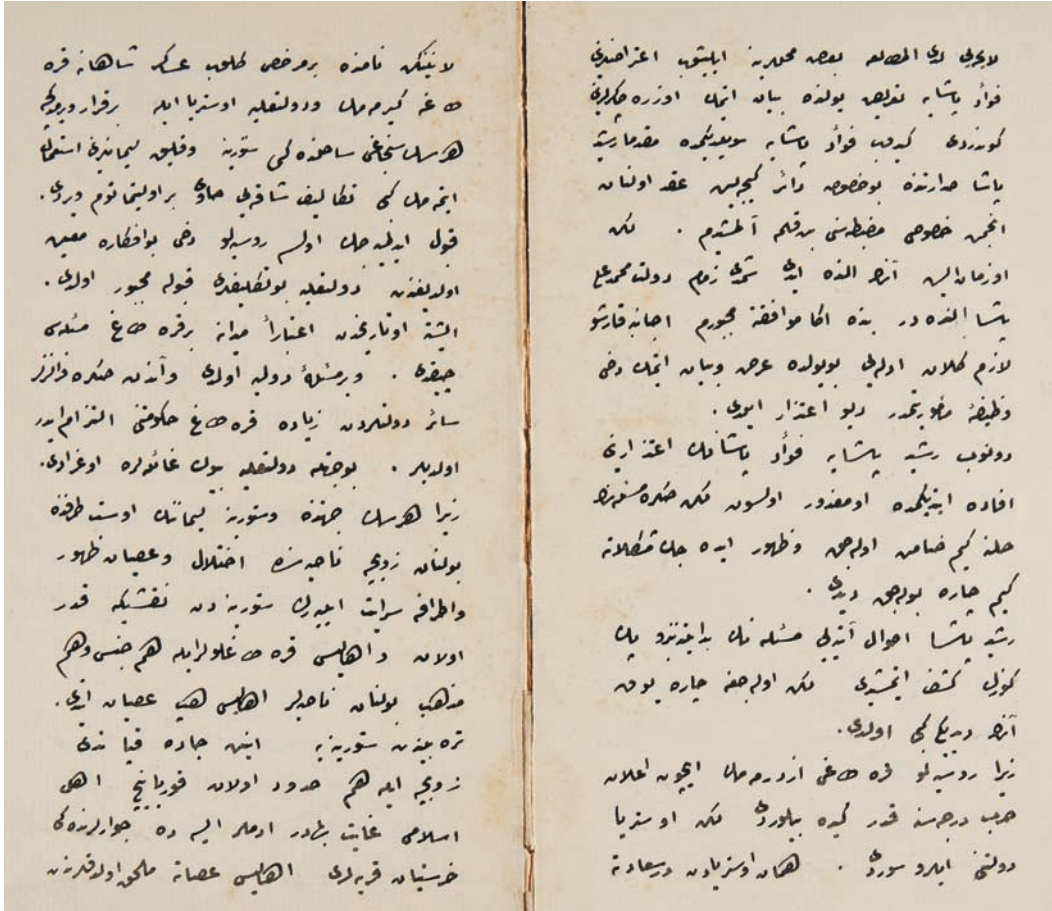 لایحه‌یی لدی المطالعه بعض محللرینه ایلیشوب اعتراضلرینی
فوأد پاشایه بولده بیان ایتمك اوزره
كوندردی كیدوب فوأد پاشایه سویلدیكمده مقدما رشید
پاشا صدارتنده بو خصوصه دائر عقد اولنان
انجمن خصوصی مضبطه‌سنی بن قلمه آلمشیدم . لكن
اوزمان ایش آنك النده ایدی شمدی زمام دولت محمد علی
پاشا النده در بنده اكا موافقته مجبورم قارشو
لازم كلان بویولده عرض وبیان ایتمك دخی
وظیفهٔ دیو اعتذار ایلدی .
دونوب رشید پاشایه فوأد پاشانك اعتذارینی
افاده ایتدیكمده او معذور اولسون لكن صكره
حلنه كیم ضامن اوله‌جق وظهور ایده جك مشكلاته
كیم چاره بوله‌جق دیدی .
رشید پاشا احوال مسئله‌نك پك
كوزل كشف ایتمشیدی لكن اوله‌جغه چاره یوق
آنك دیدیكی كبی اولدی .
زیرا روسیه‌لو قره طاغی ازدرمه‌مك ایچون اعلان
حرب درجه‌سنه قدر كیده بیلوردی لكن اوستریا
دولتنی . همان اوستریادن درسعادته
لایننكن نامنده بر مرخص كلوب عسكر شاهانه قره
طاغه كیرمه‌مك ودولتعلیه اوستریا ایله برقرار ویرمدكجه
هرسك سنجاغی ساحلنده كی ستورینه وقلیق لیمانلرینی استعمال
ایتمه‌مك كبی تكالیف شاقه‌یی حاوی بر اولتیماتوم ویردی .
قبول ایدلمیه‌جك اولسه روسیه‌لو دخی بو افكاره معین
اولدیغندن دولتعلیه بو تكلیفلری قبوله مجبور اولدی .
ایشته او تاریخدن اعتباراً میدانه بر قره طاغ مسئله‌سی
چیقدی . وبر مسئلهٔ دولیه اولدی وآندن صكره فرانسزلر
سائر دولتلردن زیاده قره طاغ حكومتنی التزام ایدر
اولدیلر . بو جهتله دولتعلیه بیوك غائله‌لره اوغرادی .
زیرا هرسك جهتنده وستورینه لیماننك اوست طرفنده
بولنان زوبچه ناحیه‌سنده اختلال وعصیان ظهور
واطرافه سرایت ایلیه‌رك ستورینه دن نقشیكه قدر
اولان واهالیسی قره طاغلولرایله هم جنس وهم
مذهب بولنان ناحیه‌لر اهالیسی هپ عصیان ایتدی .
تره‌بیندن ستورینه‌یه اینن جاده قپاندی
زوبچه ایله هم حدود اولان قوریانیچ اهل
اسلامی غایت بهادر آدملر ایسه ده جوارلرنده كی
خرستیان قریه‌لری اهالیسی عصاته ملحق اولدقلرندن